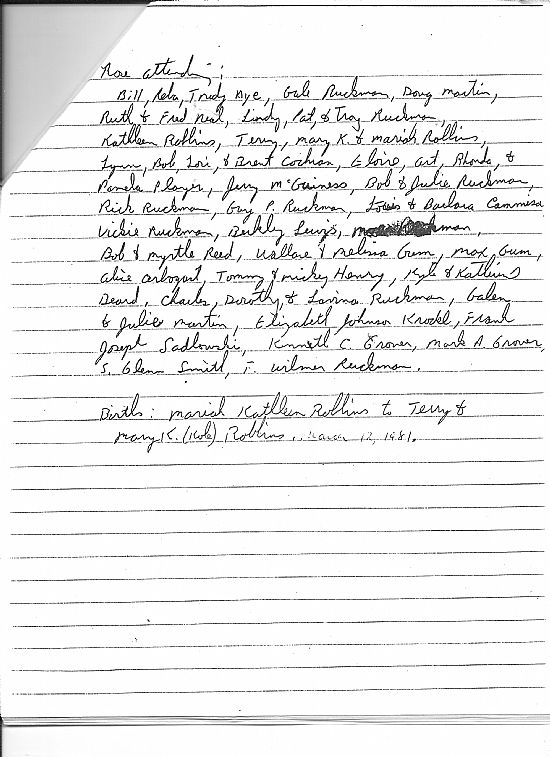 Those attending:
Bill, Reba, Trudy Nye, Gale Ruckman, Doug Martin,
Ruth & Fred Neal, Lindy, Pat, & Troy Ruckman,
Kathleen Rollins, Terry, Mary K. & Mariah Rollins,
Lynn, Bob Lori, & Brent Cochran, Eloise, Art, Rhonda, &
Pamela Player, Jerry McGuiness, Bob & Julie Ruckman,
Rick Ruckman, Guy P. Ruckman, Louis & Barbara Cammesa
Vickie Ruckman, Berkly
Bob & Myrtle Reed, Wallace & Melissa Gum, Max Gum,
Alice Arbogast, Tommy & Mickey Henry, Kyle & Kathleen
Beard, Charles, Dorothy, & Lavina Ruckman, Galen
& Julie Martin, Elizabeth Johnson Krodel, Frank
Joseph Sadlowski, Kenneth C. Grover, Mark A. Grover,
S. Glenn Smith, F. Wilmer Ruckman.
Births: Mariah Kathleen Rollins to Terry &
Mary K. (Kole) Rollins 12, 1981.